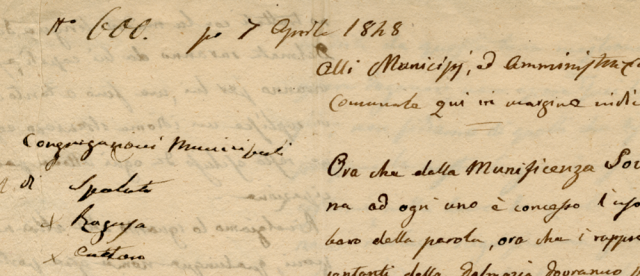 No 600. po 7 Aprile 1848
Alli Municipj, ed Amministraz
comunale qui in margine indic
Congregazioni Municipali
di Spalato
x Ragusa
x Cattaro
Ora che dalla Munificenza Sov
na ad ogni uno è concesso l'uso
bero della parola, ora che i rappre
sentanti della Dalmazia dovranno